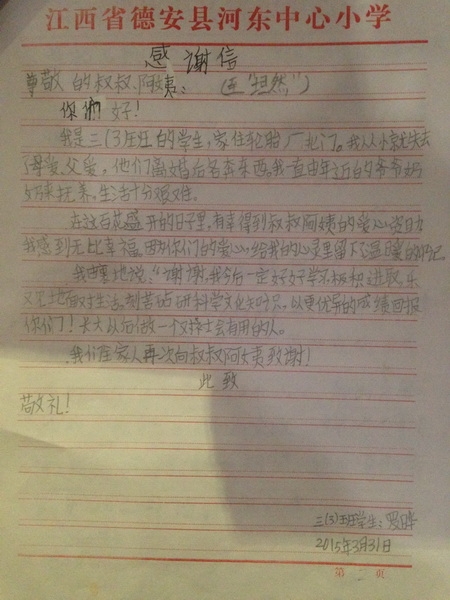 江西省德安县河东中心小学
感谢信
尊敬的叔叔、阿姨:(五"坦然")
你们好!
我是三(3)班的学生,家住轮胎厂北门。我从小就失去
了母爱、父爱,他们离婚后各奔东西。我一直由年迈的爷爷奶
奶来抚养,生活十分艰难。
在这百花盛开的日子里,有幸得到叔叔阿姨的爱心资助
我感到无比幸福,因为你们的爱心,给我的心灵里留下温暖的印记
我由衷地说:"谢谢,我今后一定好好学习,积极进取,乐
观地面对生活,刻苦钻研科学文化知识,以更优异的成绩回报
你们!长大以后做一个对社会有用的人。
我们全家人再次向叔叔阿姨致谢!
此致
敬礼!
三(3)班学生:罗
2015年3月31日
第 页